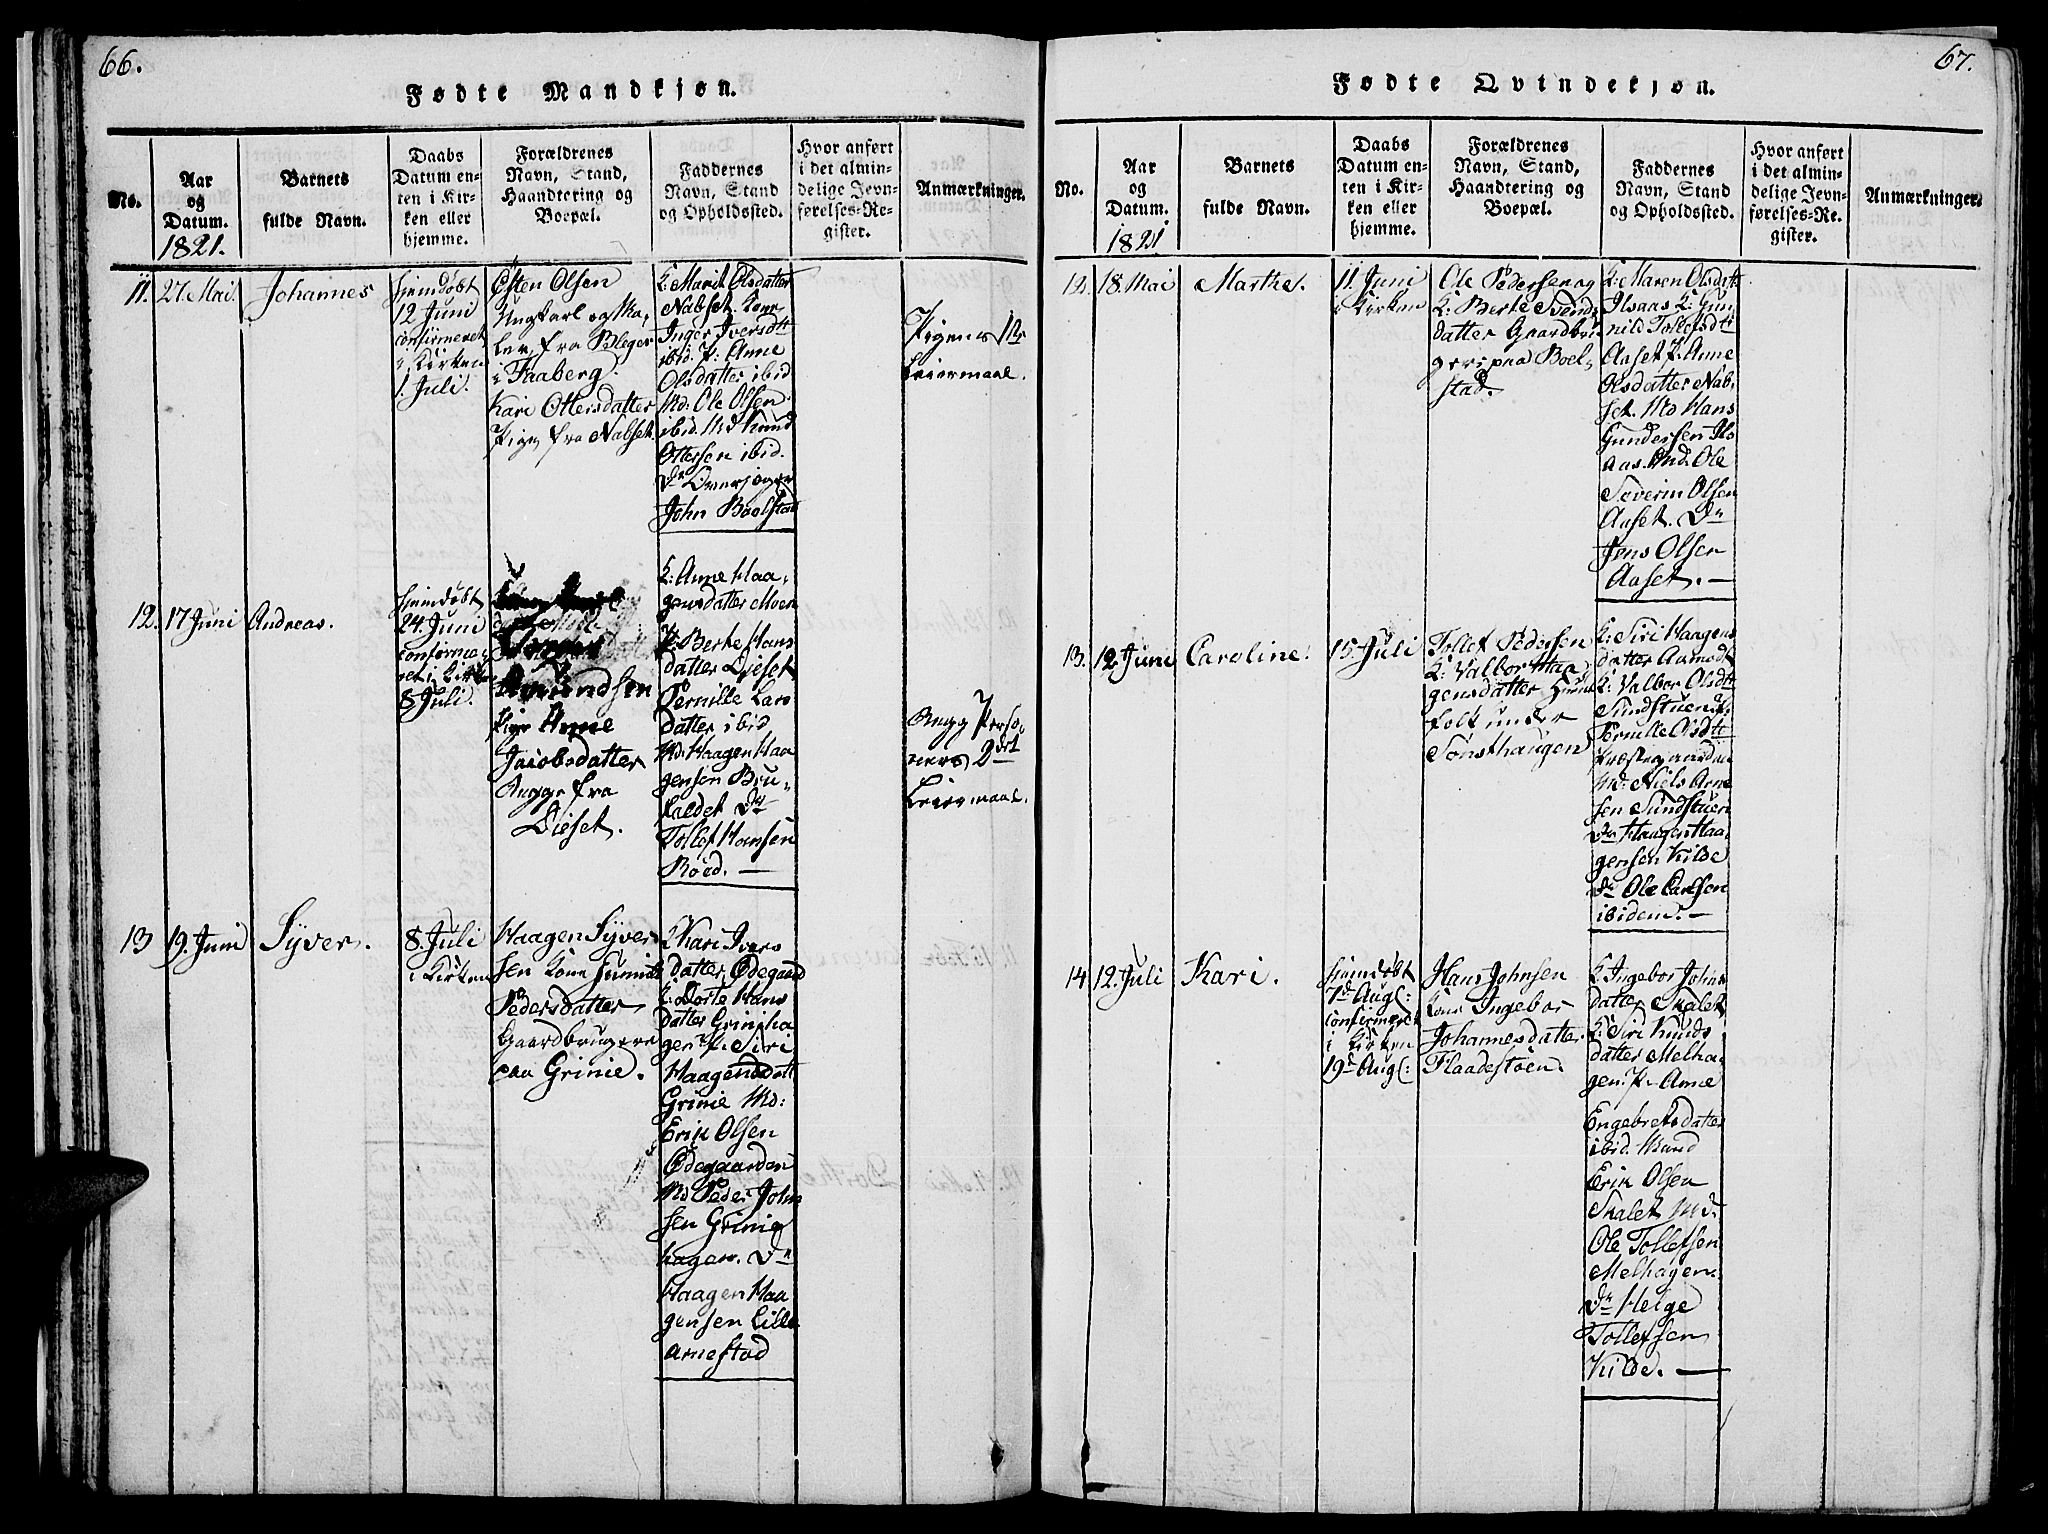 66.
Fødte Mandkjøn.
No.
Aar
og
Datum.
1821.
Barnets
fulde Navn.
Daabs
Datum en-
ten i Kir-
ken eller
hjemme.
Forældrenes
Navn, Stand,
Haandtering og
Boepæl.
Faddernes
Navn, Stand
og Opholdssted.
Hvor anført
i det almin-
delige Jevn-
førelses-Re-
gister.
Anmærkninger.
11.
27 Mai.
Johannes
hjemdøbt
12 Juni
confirmeret
i Kirken
1. Juli.
Østen Olsen
Ungkarl og Ma,
ler, fra Bleger
i Faaberg.
Kari Ottersdatter
Pige, fra Nabset.
K: Marit Olsdatter
Nabset. Kone
Inger Iversdtt
ibid. P. Anne
Olsdatter ibid
Md: Ole Olsen
ibid. Md Knud
Ottersen ibid.
John Boelstad
Pigens 1te
Leiermaal.
12.
17 Juni
Andreas.
hjemdøbt
24. Juni
confirme,
ret i Kirken
8 Juli.
Amundsen
Pige Anne
Jacobsdatter
Begge fra
Lieset.
K: Anne Haa,
gensdatter Moen
P. Berte Hans
datter Lieset
Pernille Lars
datter ibid
Md: Haagen Haa
gensen Bru,
faldet Dr
Tollef Hansen
Röed. —
Begge Perso,
ners 2det
Leiermaal.
13
19. Juni
Syver.
8. Juli
i Kirken
Haagen Syver
sen Kone
Pedersdatter
Gaardbrugere
paa Grinie.
K Kari Ivers
datter, Ødegaard
K: Dorte Hans
datter Grinieha
gen. P. Siri
Haagensdatt
Grinie Md:
Erik Olsen
Ødegaarden
Md Peder John
sen Grinie
hagen. Dr
Haagen Haa
gensen Lille
Arnestad
67.
Fødte Qvindekjøn.
No.
Aar
og
Datum.
1821
Barnets
fulde Navn.
Daabs
Datum en-
ten i Kir-
ken eller
hjemme.
Forældrenes
Navn, Stand,
Haandtering og
Boepæl.
Faddernes
Navn, Stand
og Opholdssted.
Hvor anført
i det almin-
delige Jevn-
førelses-Re-
gister.
Anmærkninger.
12.
18. Mai
Marthe.
11. Juni
i Kirken
Ole Pedersen og
K: Berte Svends
datter Gaardbru
gere paa Boel,
stad.
K: Maren Olsdtt.
Ilsaas K: Gun
nild Tollefsdtt
Aaset P. Anne
Olsdatter Nab,
set. Md Hans
Gundersen Ils
aas. Md. Ole
Severin Olsen
Aaset. Dr
Jens Olsen
Aaset. —
13.
12 Juni
Caroline.
15. Juli
Tollef Pedersen
K: Valbor Haa
gensdatter Huus
folk under
Tonsthaugen
K: Siri Haagens
datter Aamodt
K: Valbor Olsdtt
Sundstuen P.
Pernille Olsdtt
Præstegaarden
Md: Niels Arne
sen Sundstuen
Dr Haagen Haa,
gensen Kilde
Dr Ole Carlsen
ibidem. —
14
12. Juli
Kari.
hjemdøbt
7d Aug:
confirmeret
i Kirken
19d Aug:
Hans Johnsen
Kone Ingebor
Johannesdatter
Flaadestöen.
K Ingebor Johns
datter Skalet
K: Siri Knuds
datter Melha,
gen. P. Anne
Engebretsdatter
ibid. Mand
Erik Olsen
Skalet Md.
Ole Tollefsen
Melhagen.
Dr Helge
Tollefsen
Kilde. —